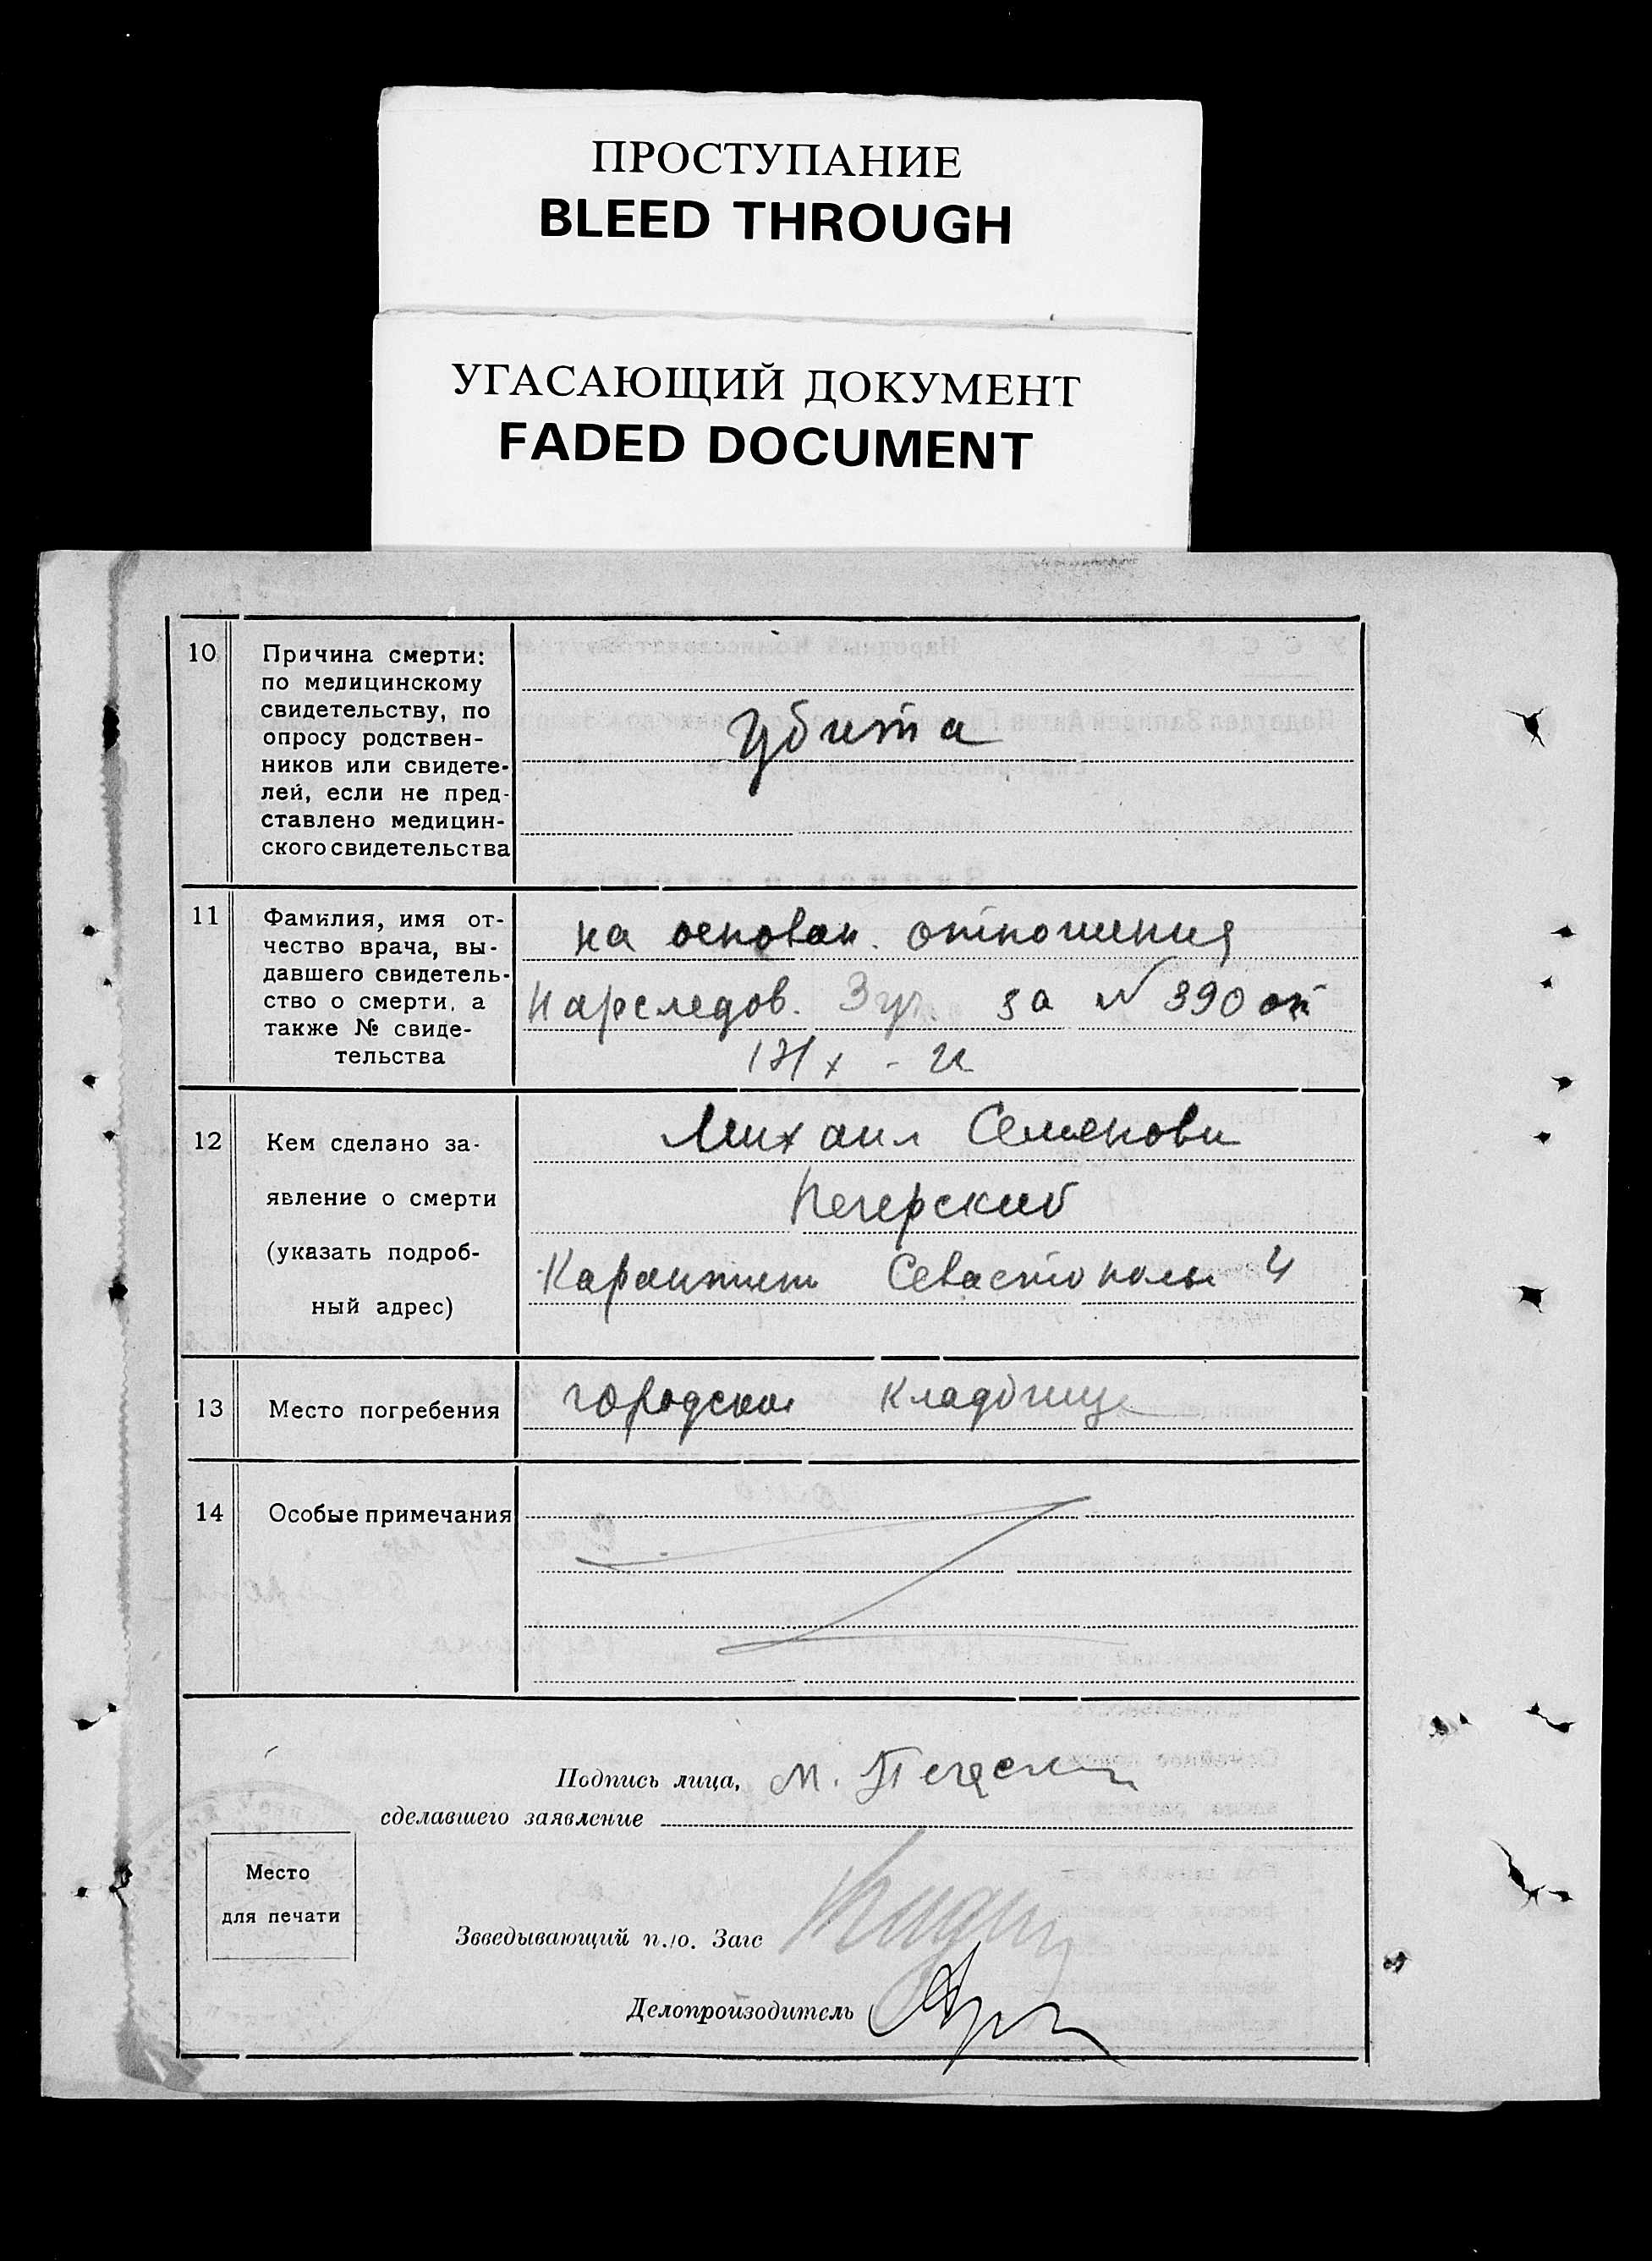 ПРОСТУПАНИЕ
BLEED THROUGH
УГАСАЮЩИЙ ДОКУМЕНТ
FADED DOCUMENT
10
Причина смерти:
по медицинскому
свидетельству, по
опросу родствен-
ников или свидете-
лей, если не пред-
ставлено медицин-
ского свидетельства
Убита
11
Фамилия, имя от-
чество врача, вы-
давшего свидетель-
ство о смерти, а
также № свиде-
тельства
на основан. отношения
Нарследов. 3 уч. за № 390 от
12
Кем сделано за-
явление о смерти
(указать подроб-
ный адрес)
Михаил Семенови
Печерский
Карантин Севастополь 4
13
Место погребения
городское кладбище
14
Особые примечания
Подпись лица,
сделавшего заявление
М. Печерский
Место
для печати
Звведывающий п./о. Загс
Делопроизодитель